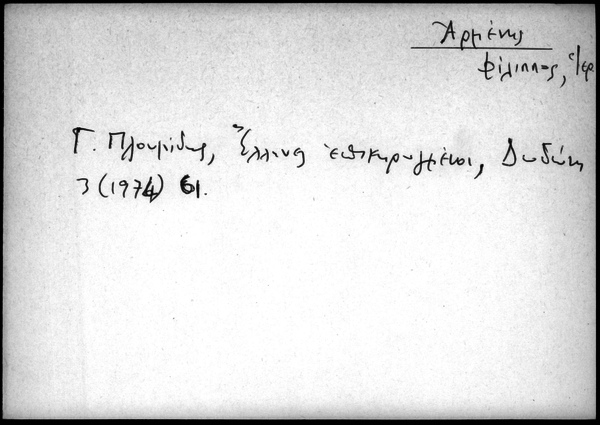 Ἀρμένης
Φίλιππος, ἱερ
Γ. Πλουμίδης, Ἕλληνες ἐπικηρυγμένοι, Δωδώνη
3 (1974) 61.